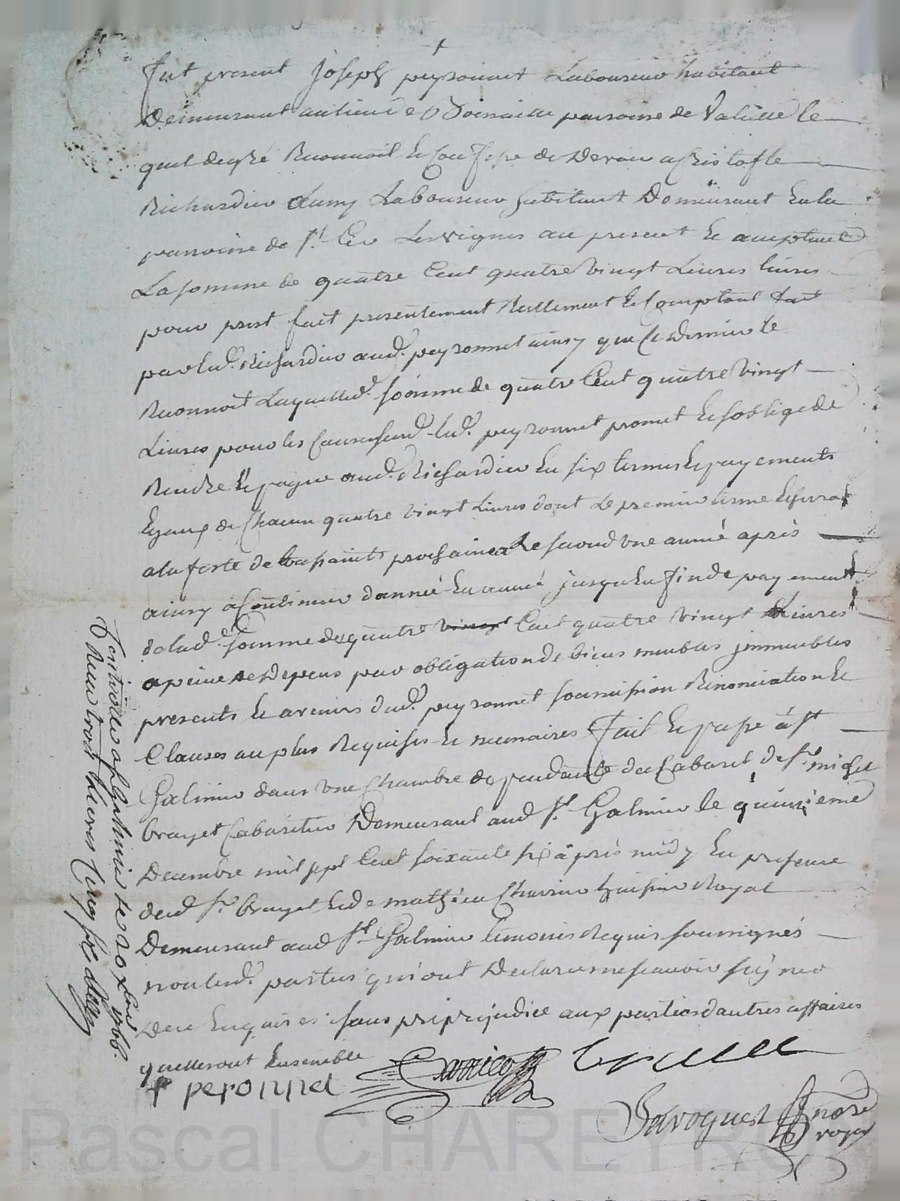 fut present joseph peyronnet Laboureur habitant
Demeurant au lieu de paroisse de Valeille le
quel de gré Reconnoit Et Confesse de Devoir a Cristofle
Richardier aussy Laboureur habitant Demeurant En la
paroisse de St. Cir Lesvignes au present Et aceptant
La somme de quatre Cent quatre vingt Livres livres
pour prest fait presentement Reellement Et Comptant fait
par lud. Richardier aud. peyronnet ainsy que Ce Dernier le
Reconnoit Laquelle d. somme de quatre Cent quatre vingt
Livres pour les Causes susd. lud. peyronnet promet Et soblige de
Rendre Et payer aud. Richardier En six termes Et payements
Egaux de Chacun quatre vingt Livres dont Le premier terme Eschera
a la feste de toussaints prochaine Le second une année après
ainsy à Continuer dannée En année jusqu'En fin de payement
de lad. somme de quatre vingt Cent quatre vingt Livres
a peine de depens par obligation de biens meubles jmmeubles
presents Et avenirs dud. peyronnet soumission Renonciation Et
Clauses au plus Requises Et necessaires fait Et passé à St
Galmier dans une Chambre dependante du Cabaret de Sr. michel
bruyet Cabaretier Demeurant aud. St. Galmier le quinzieme
Decembre mil sept Cent soixante six après midy En presence
dud. Sr. bruyet Et de mathieu Charrin huissier Royal
Demeurant aud. St. Galmier temoins Requis soussignés
non lesd. parties qui ont Declaré ne scavoir signer
De ce Enquises sans prejudice aux parties d'autres affaires
quelles ont Ensemble
peronnet
Bruyet
Royal
Controllé a St Galmier le 20 Xbre 1766.
Reçu trois livres Cinq sols
Pascal CHAREYRON